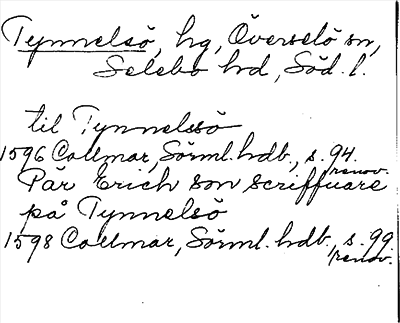 Tynnelsö, hg, Överselö sn,
Selebo hd, Söd. l.
til Tynnelssö
1596 Collmar, Sörml. hdb., s. 94.
renov.
Pär Erich son scriffuare
på Tynnelsö
1598 Collmar, Sörml. hdb., s. 99
renov.